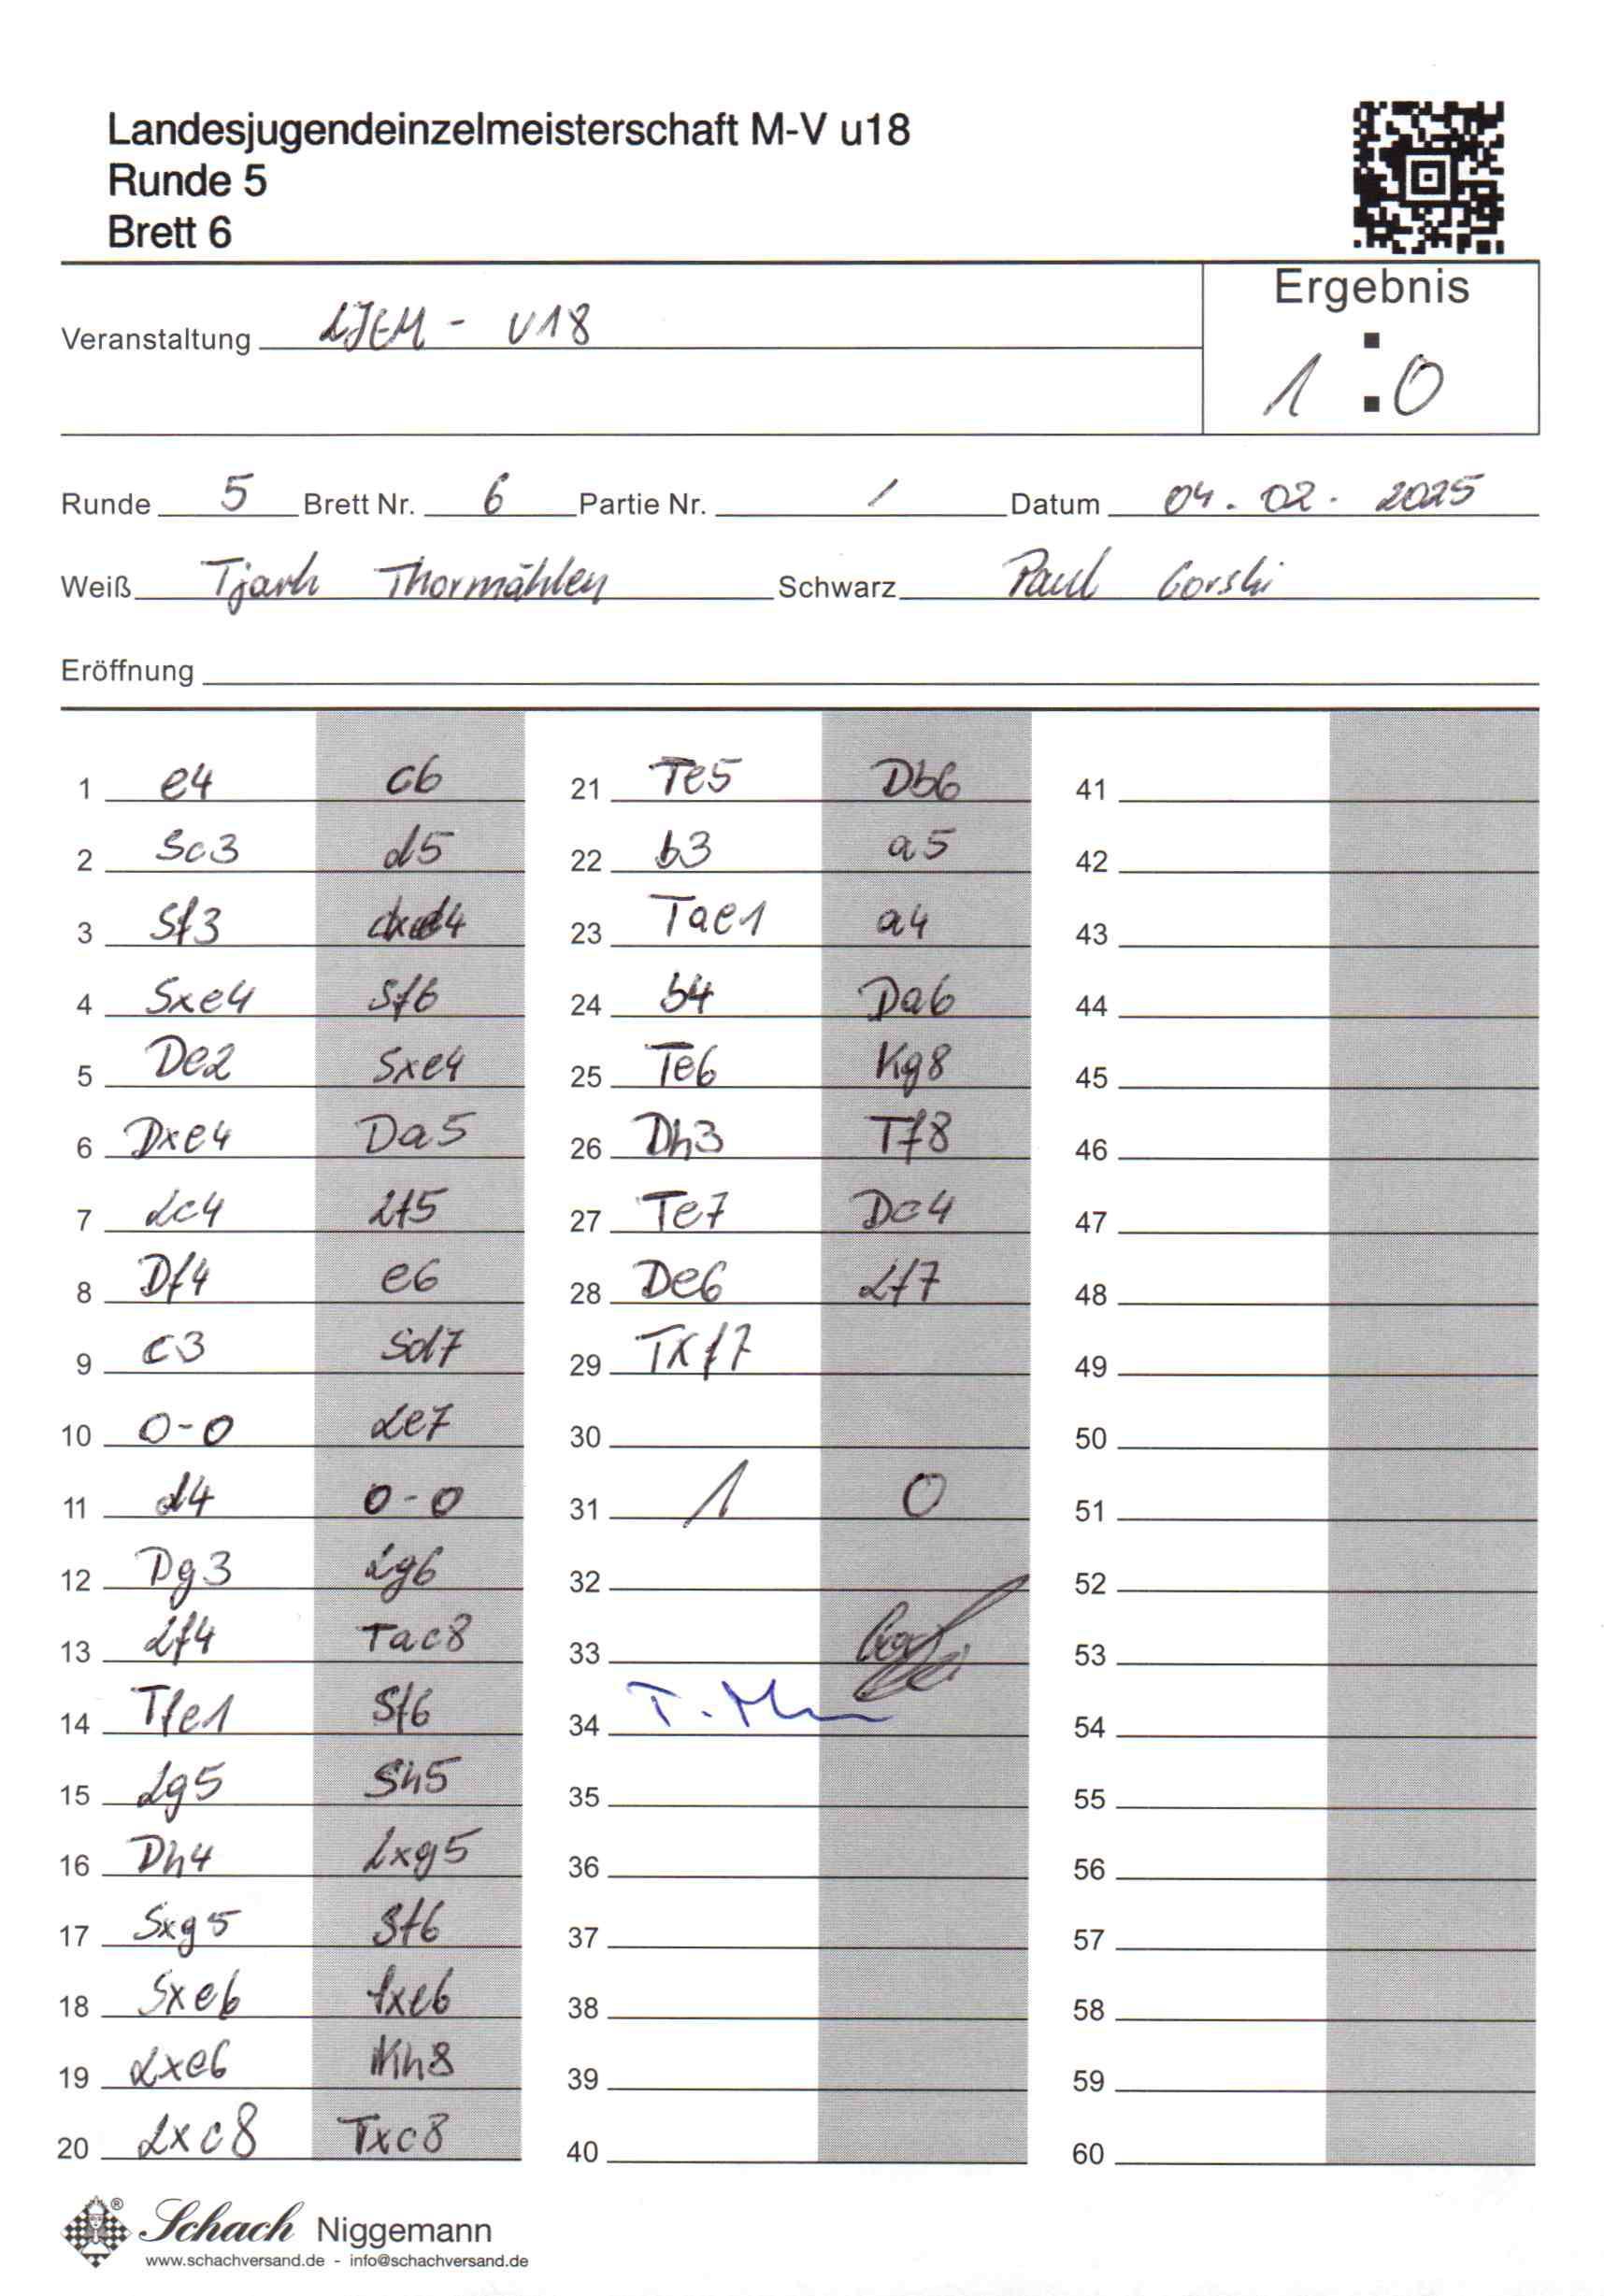 Landesjugendeinzelmeisterschaft M-V u18
Runde 5
Brett 6
Ergebnis
Veranstaltung LJEM - U18
1 : 0
Runde 5 Brett Nr. 6 Partie Nr. / Datum 04. 02. 2025
Weiß Tjark Thormählen Schwarz Paul Gorski
Eröffnung
1 e4 c6 21 Te5 Db6 41
2 Sc3 d5 22 b3 a5 42
3 Sf3 dxe4 23 Tae1 a4 43
4 Sxe4 Sf6 24 b4 Da6 44
5 De2 Sxe4 25 Te6 Kg8 45
6 Dxe4 Da5 26 Dh3 Tf8 46
7 Lc4 Lf5 27 Te7 Dc4 47
8 Df4 e6 28 De6 Lf7 48
9 c3 Sd7 29 Txf7 49
10 0-0 Le7 30 50
11 d4 0-0 31 1 0 51
12 Dg3 Lg6 32 52
13 Lf4 Tac8 33 53
14 Tfe1 Sf6 34 54
15 Lg5 Sh5 35 55
16 Dh4 Lxg5 36 56
17 Sxg5 Sf6 37 57
18 Sxe6 fxe6 38 58
19 Lxe6 Kh8 39 59
20 Lxc8 Txc8 40 60
Schach Niggemann
www.schachversand.de - info@schachversand.de